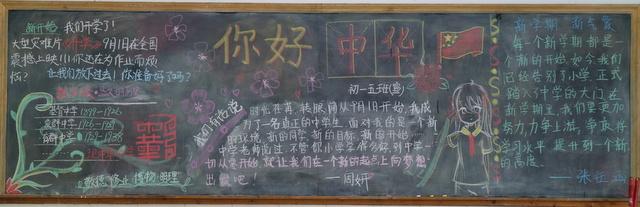 新开始 我们开学了！
大型灾难片《开学》9月1日在全国
震撼上映！！！你还在为作业而烦
恼？
让我们放下过去！你准备好了吗？
1899-1926
敬德 修业 博物 明理
你好 中华
初一五班(宣)
我们有话说
时光荏苒，转眼间从9月1日开始，我成
为了一名真正的中学生，面对我的是一个新
的环境，新的同学，新的目标，新的开始……
中学老师说过，不管你小学学得怎么样，到中学一
切从零开始，就让我们在一个新的起点上向梦想
出发吧！
——周妍
新学期 新气象
每一个新学期都是一
个新的开始，如今我们
已经告别了小学，正式
踏入了中学的大门，在
新学期里，我们要更加
努力，力争上游，争取将
学习水平提升到一个新
的高度。